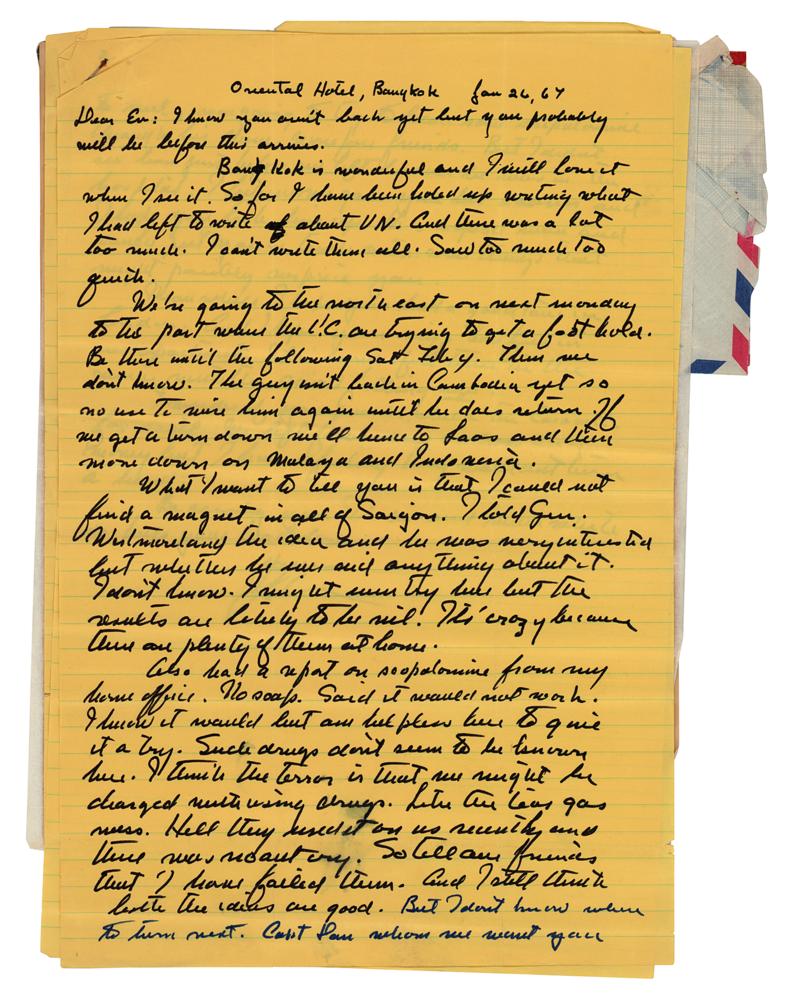 Oriental Hotel, Bangkok Jan 26, 67
Dear Ev: I know you aren't back yet but you probably
will be before this arrives.
Bangkok is wonderful and I will love it
when I see it. So far I have been holed up writing what
I had left to write about VN. And there was a lot
too much. I can't write them all. Saw too much too
quick.
We're going to the northeast on next monday
to the part where the V.C. are trying to get a foot hold.
Be there until the following Sat Feb 4. Then we
don't know. The guy isn't back in Cambodia yet so
no use to wire him again until he does return. If
we get a turn down we'll have to Laos and then
move down on Malaya and Indonesia.
What I want to tell you is that I could not
find a magnet in all of Saigon. I told Gen.
Westmoreland the idea and he was very interested
but whether he will do anything about it.
I don't know. I might even try here but the
results are likely to be nil. Its' crazy because
there are plenty of them at home.
Also had a report on scopalomine from my
home office. No soap. Said it would not work.
I know it would but am helpless here to give
it a try. Such drugs don't seem to be known
here. I think the terror is that we might be
charged with using drugs. Like the tear gas
mess. Hell they used it on us recently and
there was no outcry. So tell our friends
that I have failed them. And I still think
both the ideas are good. But I don't know where
to turn next. Capt San whom we want you